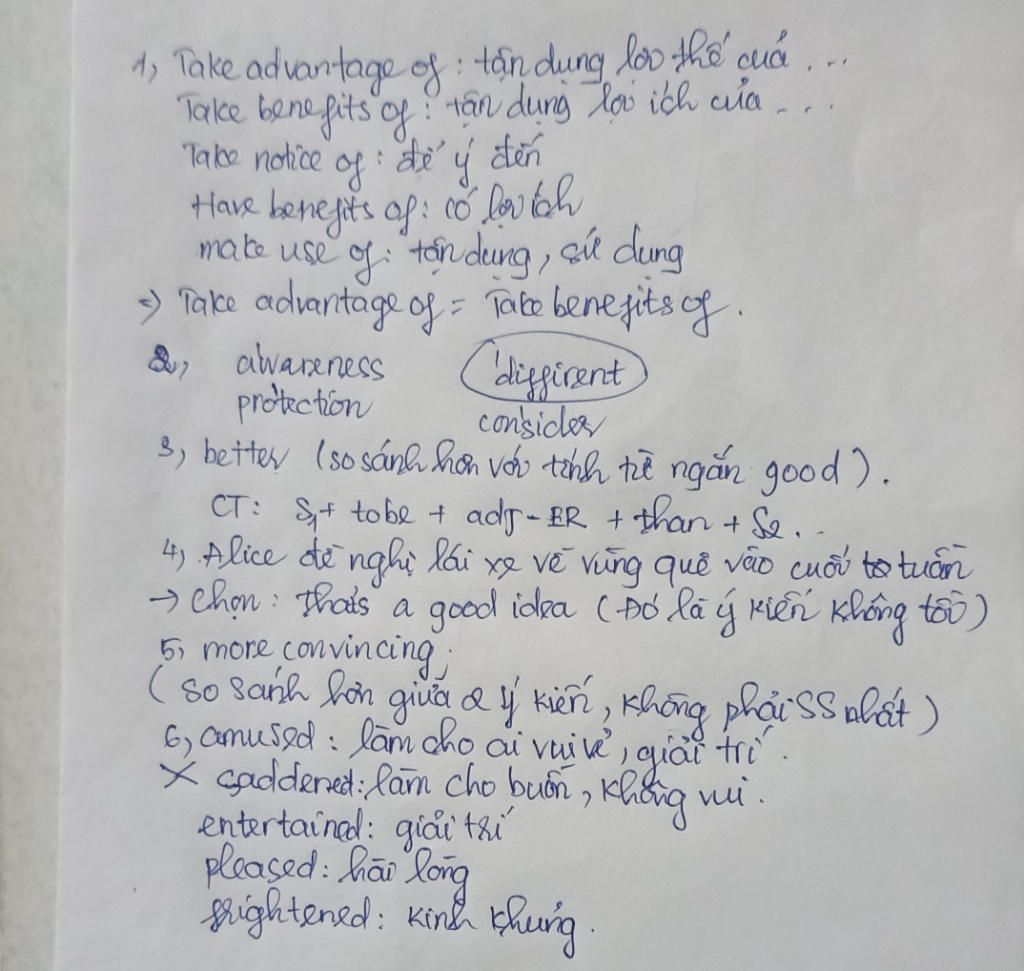 1, Take advantage of : tận dụng lợi thế của ...
Take benefits of : tận dụng lợi ích của ...
Take notice of : để ý đến
Have benefits of : có lợi ích
make use of : tận dụng, sử dụng
=> Take advantage of = Take benefits of.
2, awareness 'diffirent
pro'tection con'sider
3, better (so sánh hơn với tính từ ngắn good).
CT: S1 + tobe + adj-ER + than + S2..
4, Alice đề nghị lái xe về vùng quê vào cuối tuần
→ Chọn: that's a good idea (Đó là ý kiến không tồi)
5, more convincing,
(so sánh hơn giữa 2 ý kiến, không phải SS nhất)
6, amused : làm cho ai vui vẻ, giải trí.
X saddened: làm cho buồn, không vui.
entertained: giải trí
pleased: hài lòng
frightened: kinh khủng.